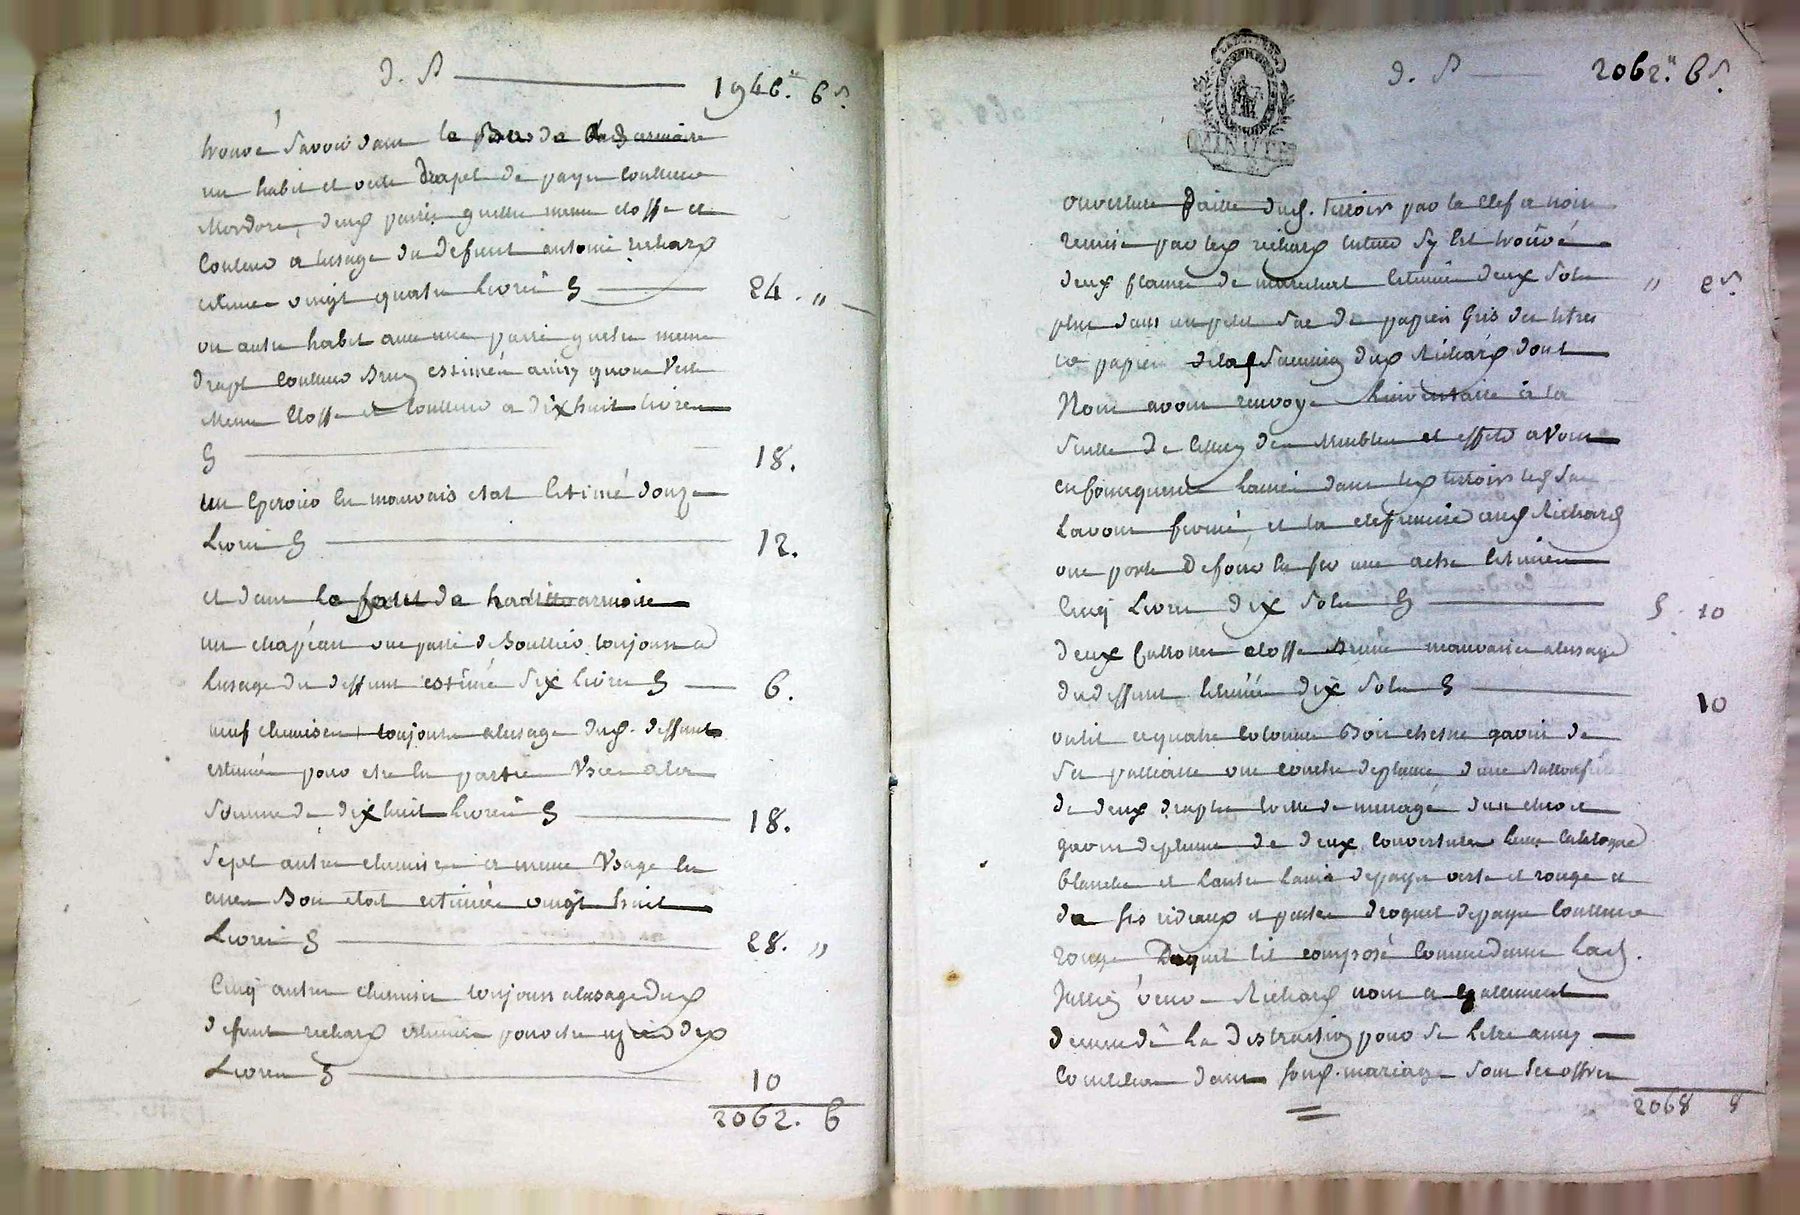 D. P. 1946.ᴴ 6 s.
trouvé savoir dans le Bas de lad armoire
un habit et veste Drapt de pays Coulleur
Mordoré, deux pairs guettre meme etoffe et
Couleur a lusage du defunt antoine richard
estimes vingt quatre livres 24. "
un autre habit avec une pairre guettre meme
drapt Coulleur Brun estimés ainsy qu'une Veste
meme Etoffe et Coulleur a dix huit livres
18.
un Eperoirs en mauvais etat Estimé douze
Livres 12.
et dans le de hadite armoire
un chapeau une paire de Soullier toujours a
lusage du deffunt estimé six livres 6.
neuf chemises toujours a lusage dud. deffunt
estimés pour etre en partie Usées a la
somme de dix huit livres 18.
sept autres chemises a meme Usage en
assez Bon etat estimées vingt huit
Livres 28. "
Cinq autres chemises toujours a lusage dud
defunt richard estimées pour etre uzées dix
Livres 10
2062. 6
D. P. 2062.ᴴ 6 s.
MINUTE
ouverture faitte dud. tirroirs par la Clef a nous
remise par led richard tuteur sy Est trouvé
deux flames de marechal Estimée deux sols " 2 s.
plus dans un petit sac de papier Gris des titres
et papiers de la succession dud Richard dont
Nous avons renvoyé Linventaire a la
suitte de celluy des Meubles et effets avons
en Consequence laissé dans led tirroirs led sac
Lavons fermé, et la clef remise aud Richard
une porte de fer une ache Estimée
Cinq Livres dix sols 5. 10
deux Cullottes etoffe Brune mauvaises a lusage
du deffunt Estimés dix sols 10
un lit a quatre colonnes Bois chesne garni de
sa palliasse une couche de plume dune
de deux draps toille de menage dun chevet
garni de plume de deux Couvertures lune Catalogne
blanche et lautre laine de pays verte et rouge et
de ses rideaux et pentes droguet de pays Coulleur
rouge Duquel lit composé Comme dessus Lad.
Jullien veuve Richard nous a Egallement
demandé La distraction pour se Letre ainsy
Constitué dans son. mariage sous les offres
2068 8